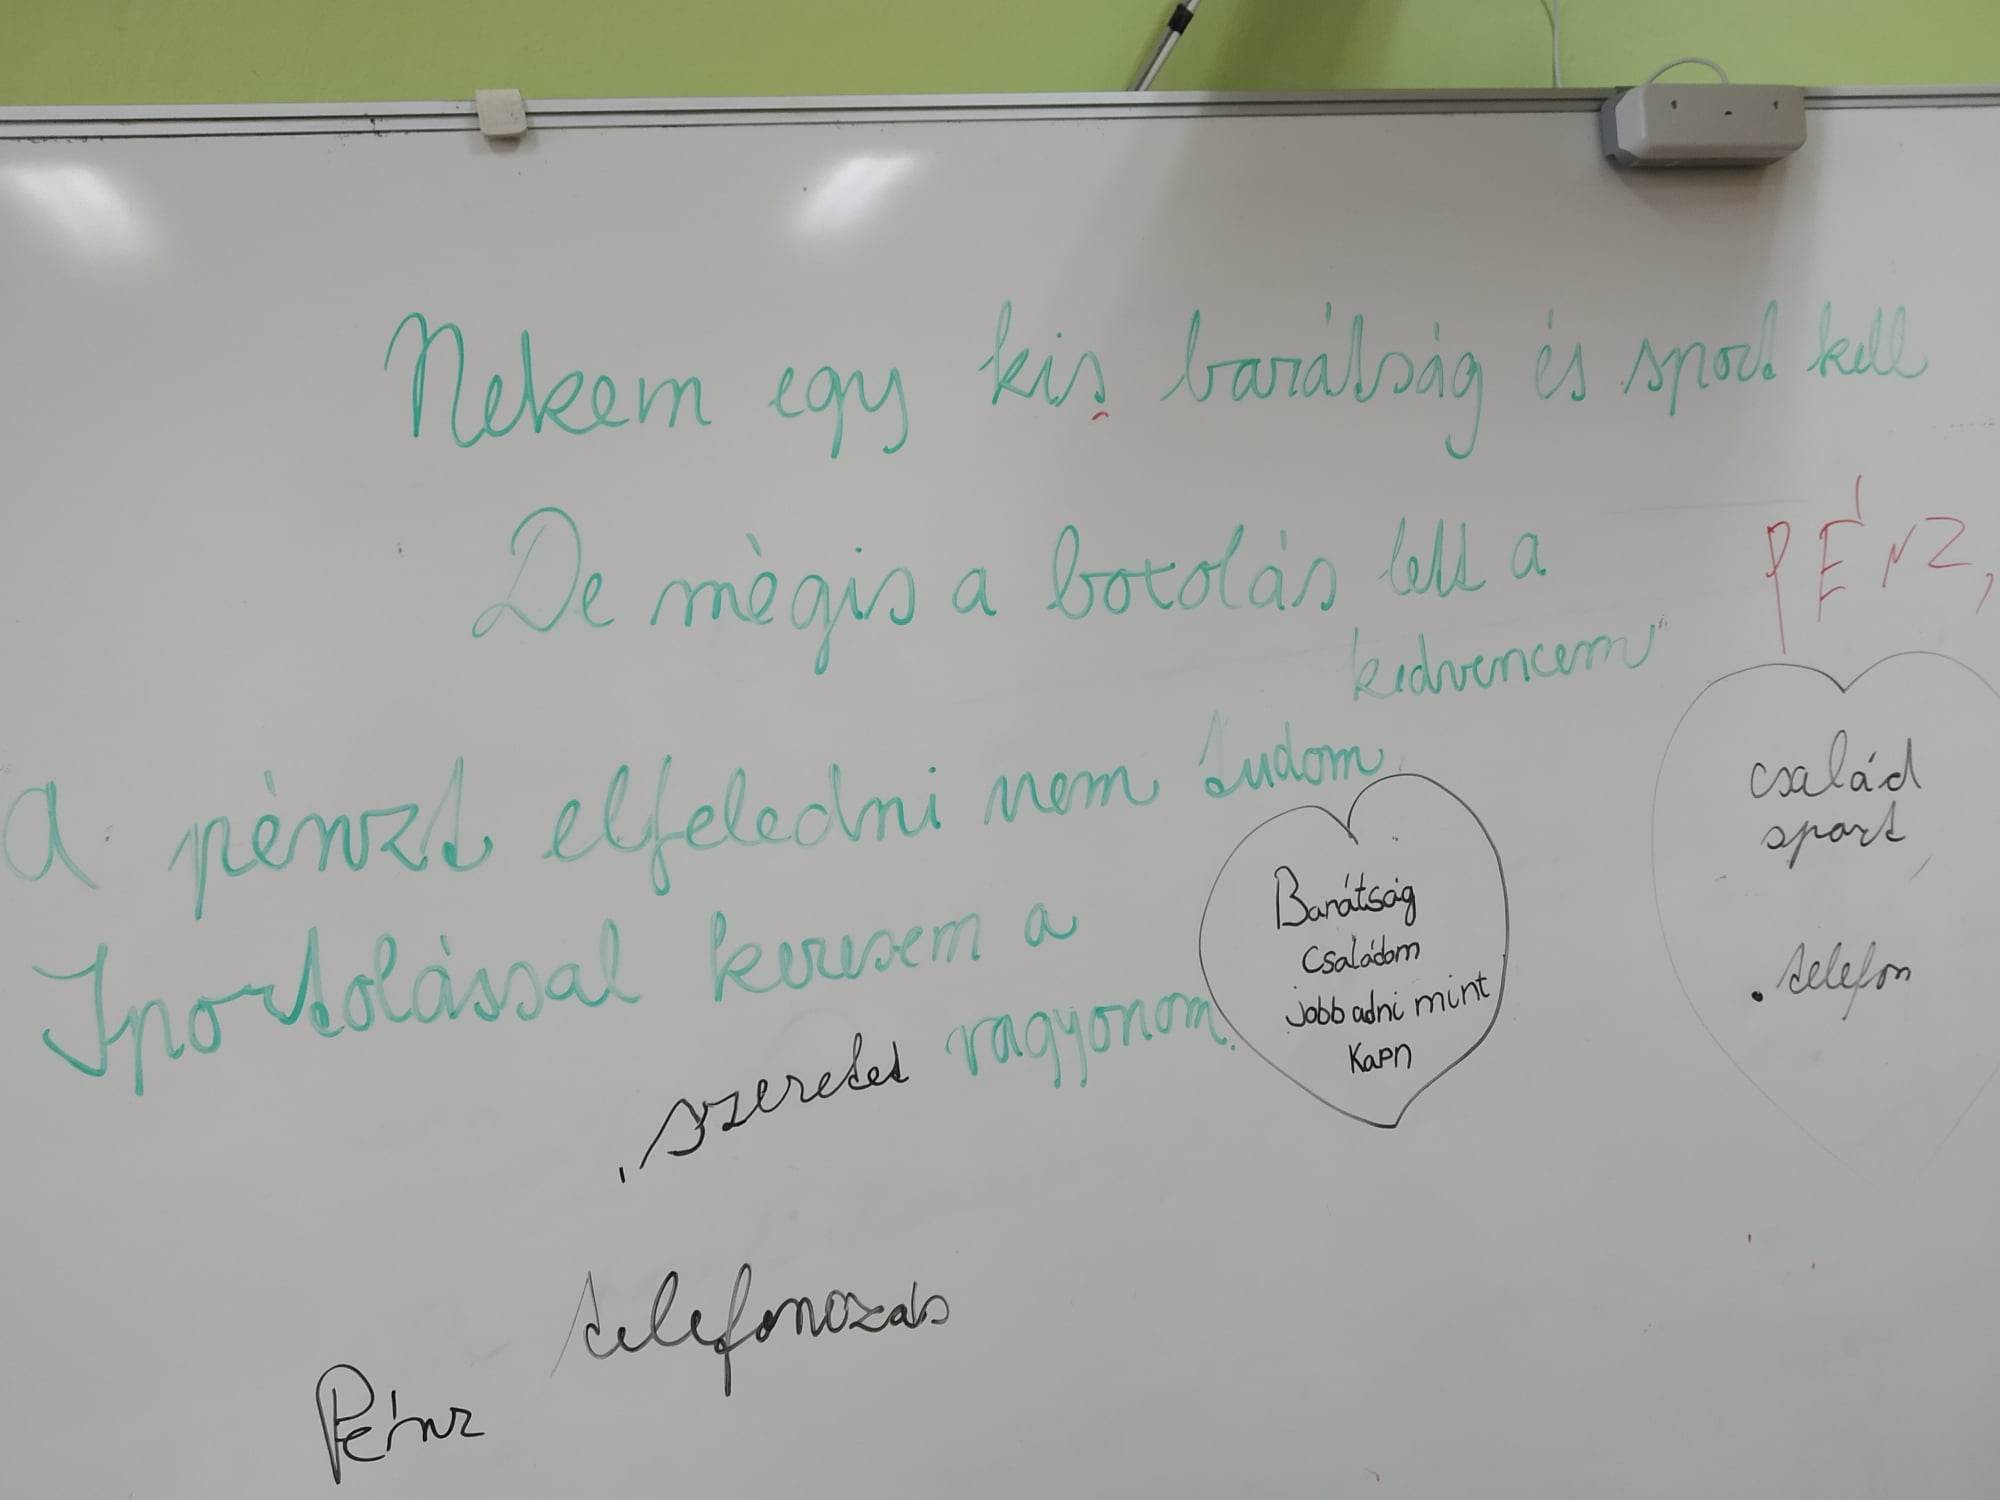 Nekem egy kis barátság és sport kell
De mégis a botolás lett a
kedvencem
PÉNZ,
A pénzt elfeledni nem tudom
Sportolással keresem a
vagyonom.
Barátság
Családom
jobb adni mint
Kapn
család
sport,
. telefon
, szeretet
telefonozás
Pénz